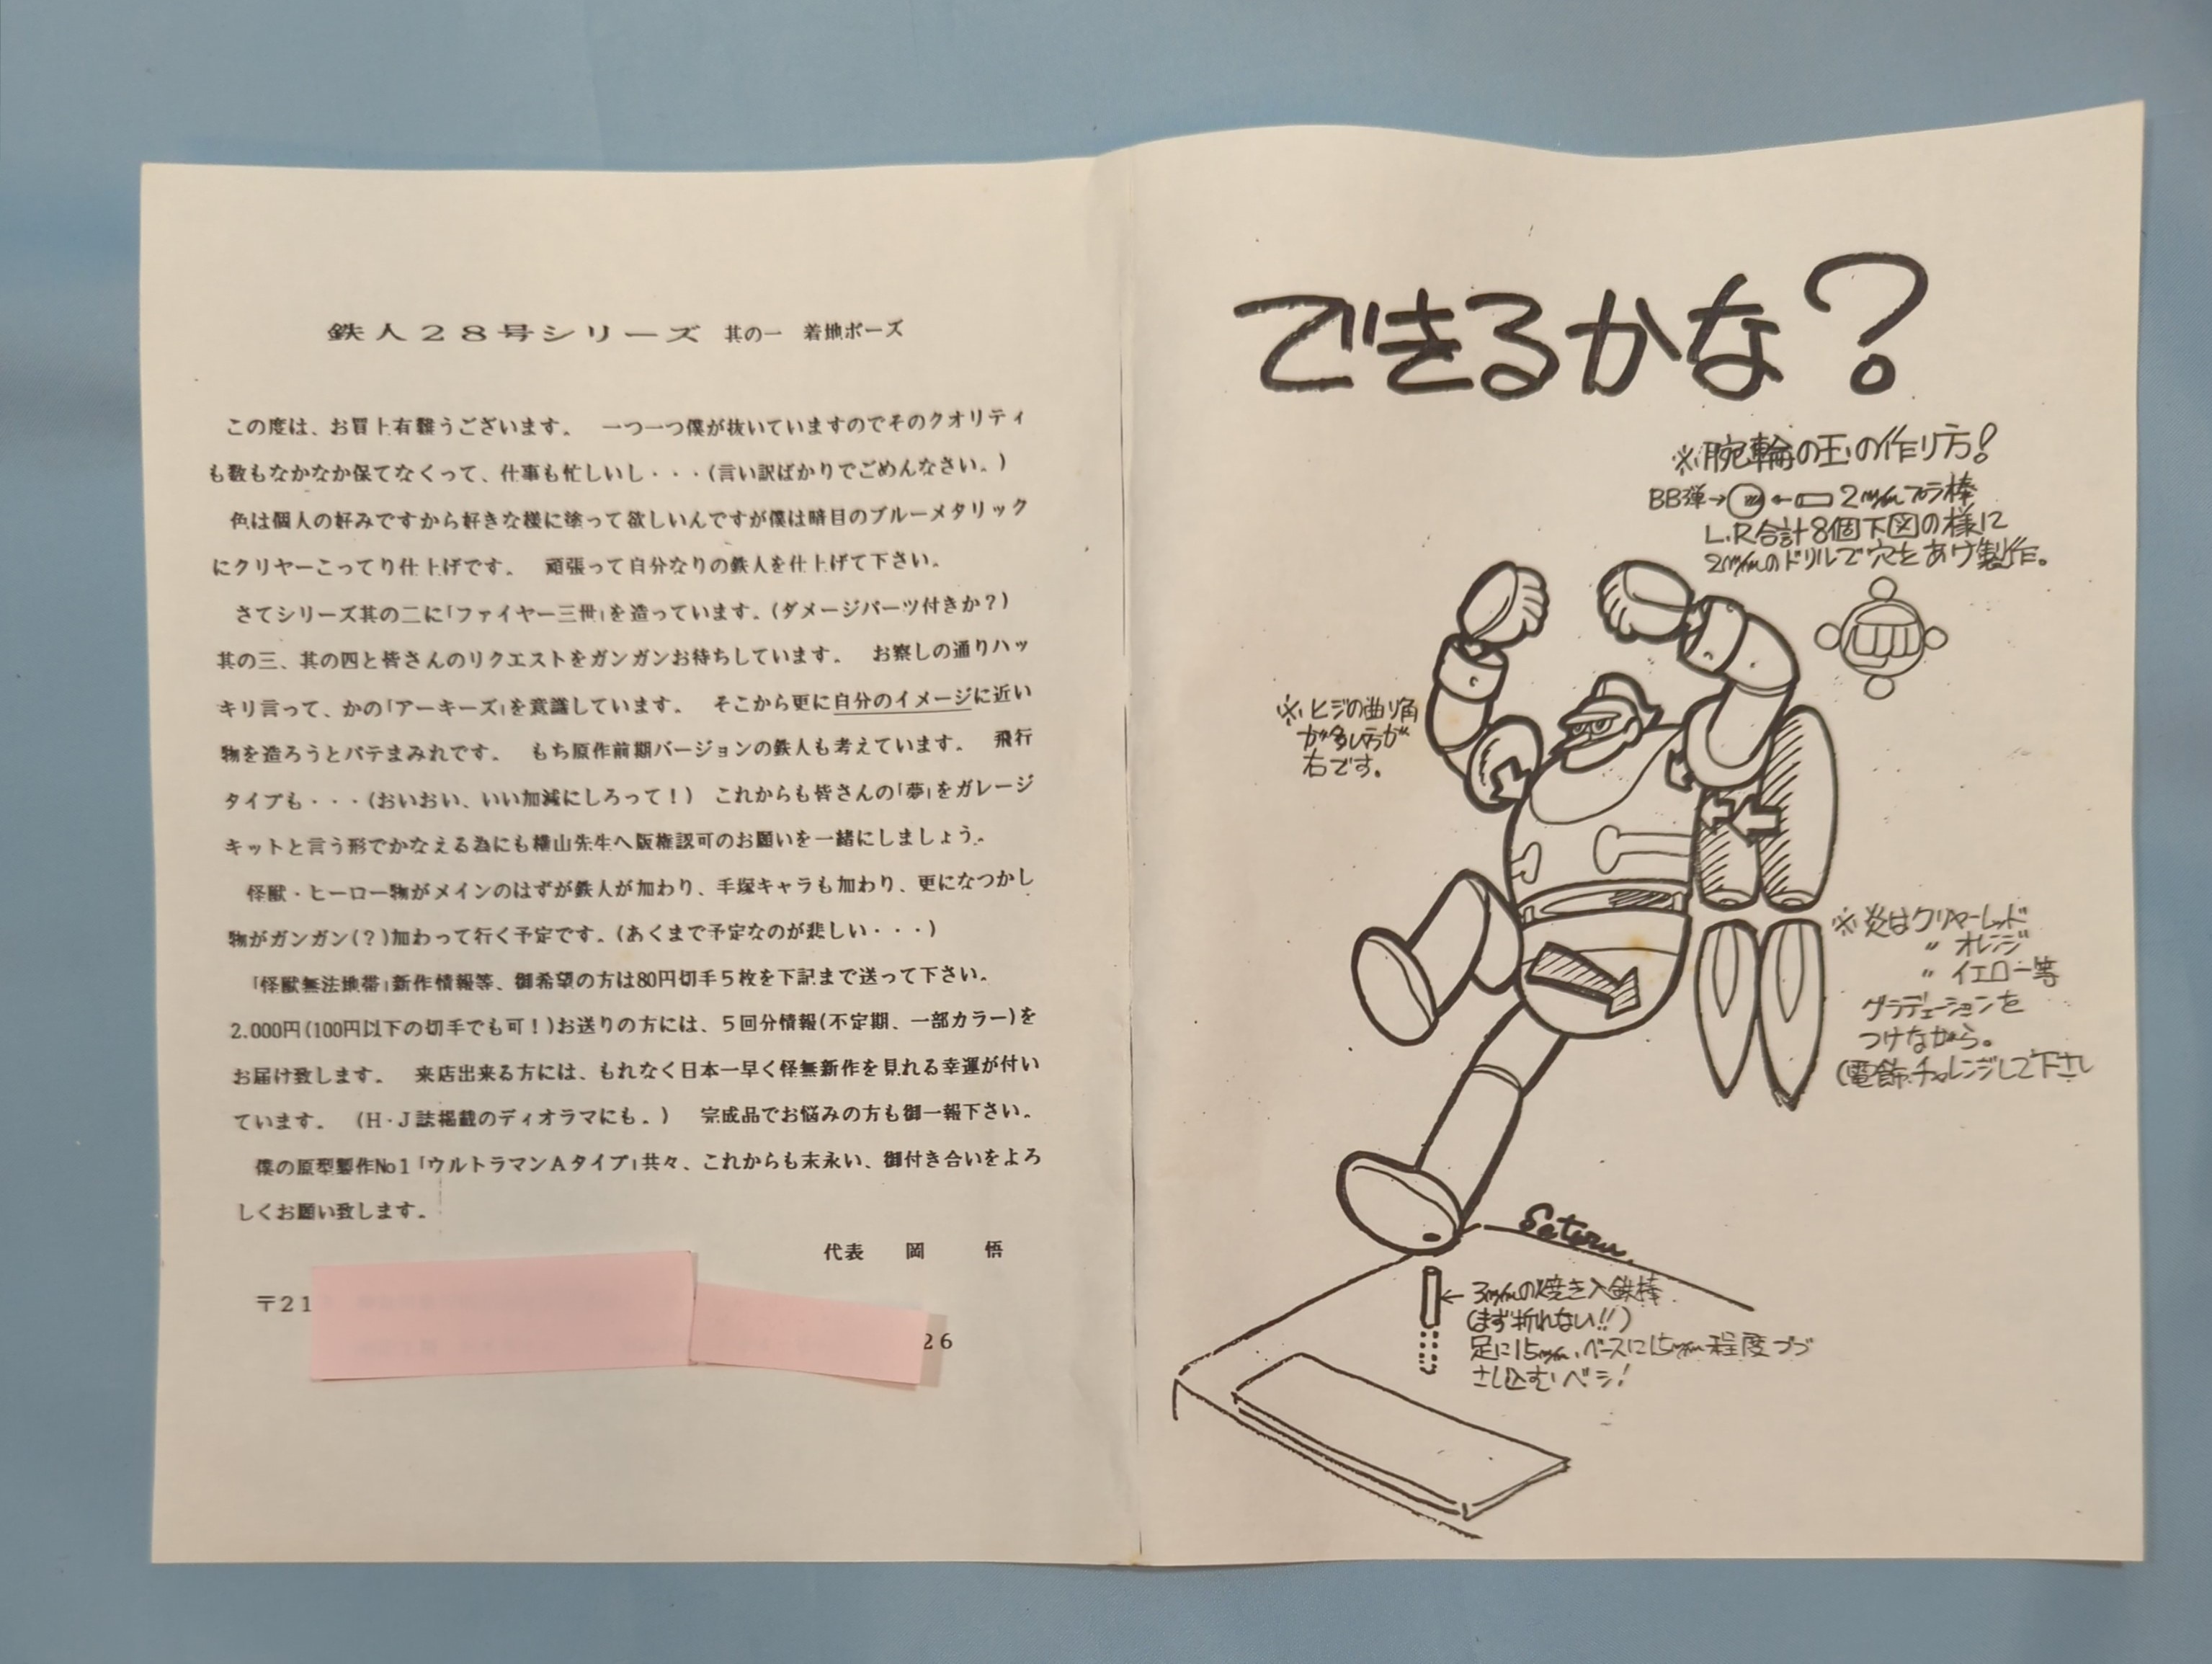 鉄人28号シリーズ 其の一 着地ポーズ
この度は、お買上有難うございます。 一つ一つ僕が抜いていますのでそのクオリティ
も数もなかなか保てなくって、仕事も忙しいし・・・(言い訳ばかりでごめんなさい。)
色は個人の好みですから好きな様に塗って欲しいんですが僕は暗目のブルーメタリック
にクリヤーこってり仕上げです。 頑張って自分なりの鉄人を仕上げて下さい。
さてシリーズ其の二に「ファイヤー三世」を造っています。(ダメージパーツ付きか?)
其の三、其の四と皆さんのリクエストをガンガンお待ちしています。 お察しの通りハッ
キリ言って、かの「アーキーズ」を意識しています。 そこから更に自分のイメージに近い
物を造ろうとパテまみれです。 もち原作前期バージョンの鉄人も考えています。 飛行
タイプも・・・(おいおい、いい加減にしろって!) これからも皆さんの「夢」をガレージ
キットと言う形でかなえる為にも横山先生へ版権認可のお願いを一緒にしましょう。
怪獣・ヒーロー物がメインのはずが鉄人が加わり、手塚キャラも加わり、更になつかし
物がガンガン(?)加わって行く予定です。(あくまで予定なのが悲しい・・・)
「怪獣無法地帯」新作情報等、御希望の方は80円切手5枚を下記まで送って下さい。
2.000円(100円以下の切手でも可!)お送りの方には、5回分情報(不定期、一部カラー)を
お届け致します。 来店出来る方には、もれなく日本一早く怪無新作を見れる幸運が付い
ています。 (H・J誌掲載のディオラマにも。) 完成品でお悩みの方も御一報下さい。
僕の原型製作No1「ウルトラマンAタイプ」共々、これからも末永い、御付き合いをよろ
しくお願い致します。
代表 岡 悟
〒21
26
できるかな?
※腕輪の玉の作り方!
BB弾→ ← 2m/mプラ棒
L.R合計8個下図の様に
2m/mのドリルで穴をあけ製作。
※ヒジの曲り角
が多い方が
右です。
※炎はクリヤーレッド
〃 オレンジ
〃 イエロー等
グラデーションを
つけながら。
(電飾チャレンジして下さい
Satoru
← 3m/mの焼き入鉄棒
(まず折れない!!)
足に15m/m、ベースに15m/m程度づつ
さし込むベシ!